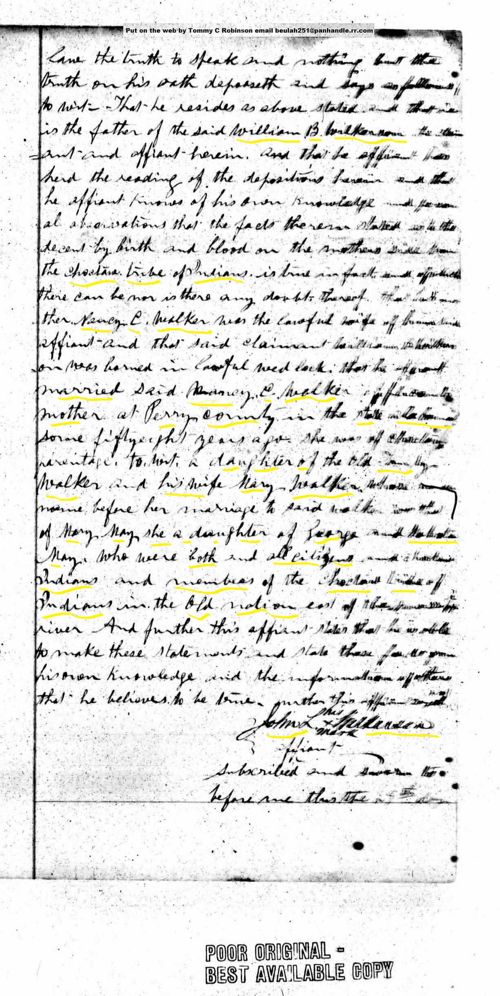 Put on the web by Tommy C Robinson email beulah251@panhandle.rr.com
the truth to speak and nothing but the
truth on his oath deposeth and says as follows
to wit - That he resides as above stated and that
is the father of the said William B. Wilkerson the
and affiant herein. And that he affiant has
herd the reading of the depositions herein and that
he affiant knows of his own knowledge and
al observations that the facts therein stated as to the
decent by birth and blood on the mothers side from
the Choctaw tribe of Indians. is true in fact and
there can be nor is there any doubt thereof. that
ther Nancy C. Walker was the lawful wife of
affiant and that said claimant William
on was borned in lawful wed lock. that he affiant
married said Nancy. C. Walker
mother at Perry county in the state
some fiftyeight years ago. she was of Choctaw
parentage. to. wit. a daughter of the old
Walker and his wife Mary. Walker.
name before her marriage to said Walker was that
of Mary. May. she a daughter of George and
May. who were both and all citizens and Choctaw
Indians and members of the Choctaw tribe of
Indians in the Old nation east of the
river And further this affiant states that he is able
to make these statements and state these facts from
his own knowledge and the information of others
that he believes to be true. further this affiant
John L his Wilkerson
x mark
affiant
subscribed and sworn to
before me this the
POOR ORIGINAL -
BEST AVAILABLE COPY